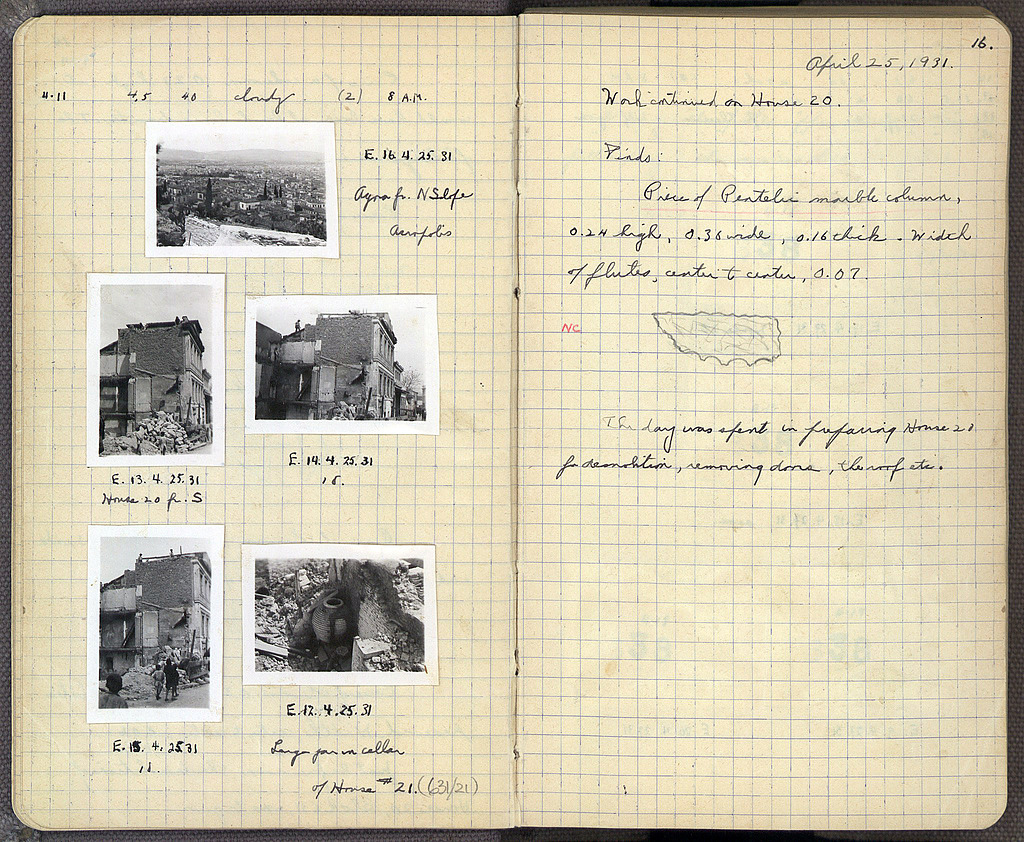 4.11 4,5 40 cloudy (2) 8 A.M.
E. 16. 4. 25. 31
Agora fr. N Slope
Acropolis
E. 13. 4. 25. 31
House 20 fr. S
E. 14. 4. 25. 31
E. 15. 4. 25 31
E. 12. 4. 25. 31
Large jar in cellar
of House # 21. (631/21)
16.
April 25, 1931.
Work continued on House 20.
Finds:
Piece of Pentelic marble column,
0.24 high, 0.36 wide, 0.16 thick. Width
of flutes, center to center, 0.07.
NC
The day was spent in preparing House 20
for demolition, removing doors, the roof etc.